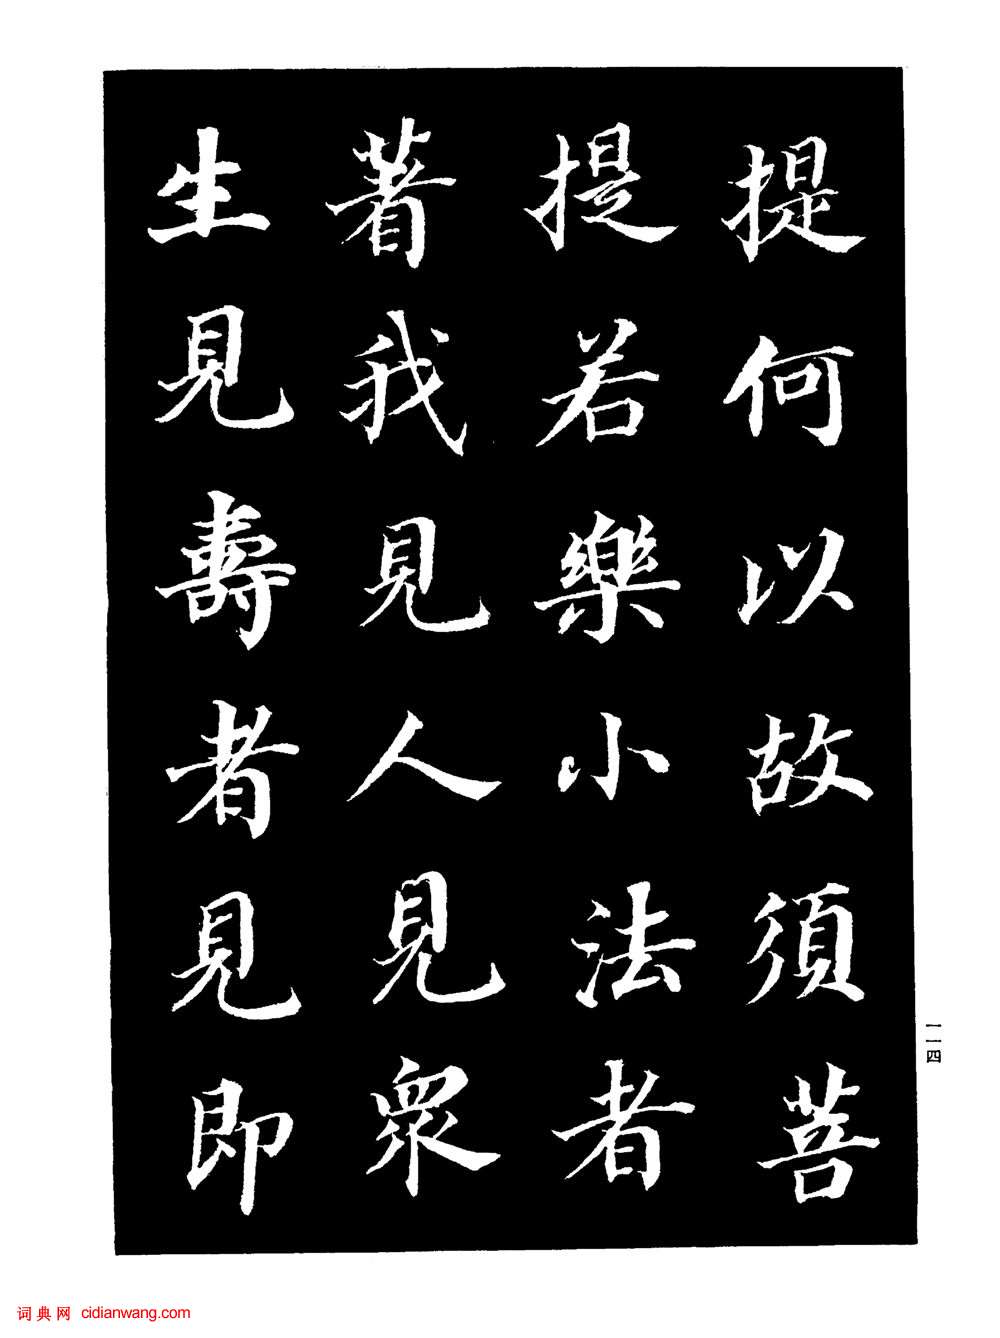 提何以故須菩
提若樂小法者
著我見人見衆
生見壽者見即
一一四
词典网 cidianwang.com